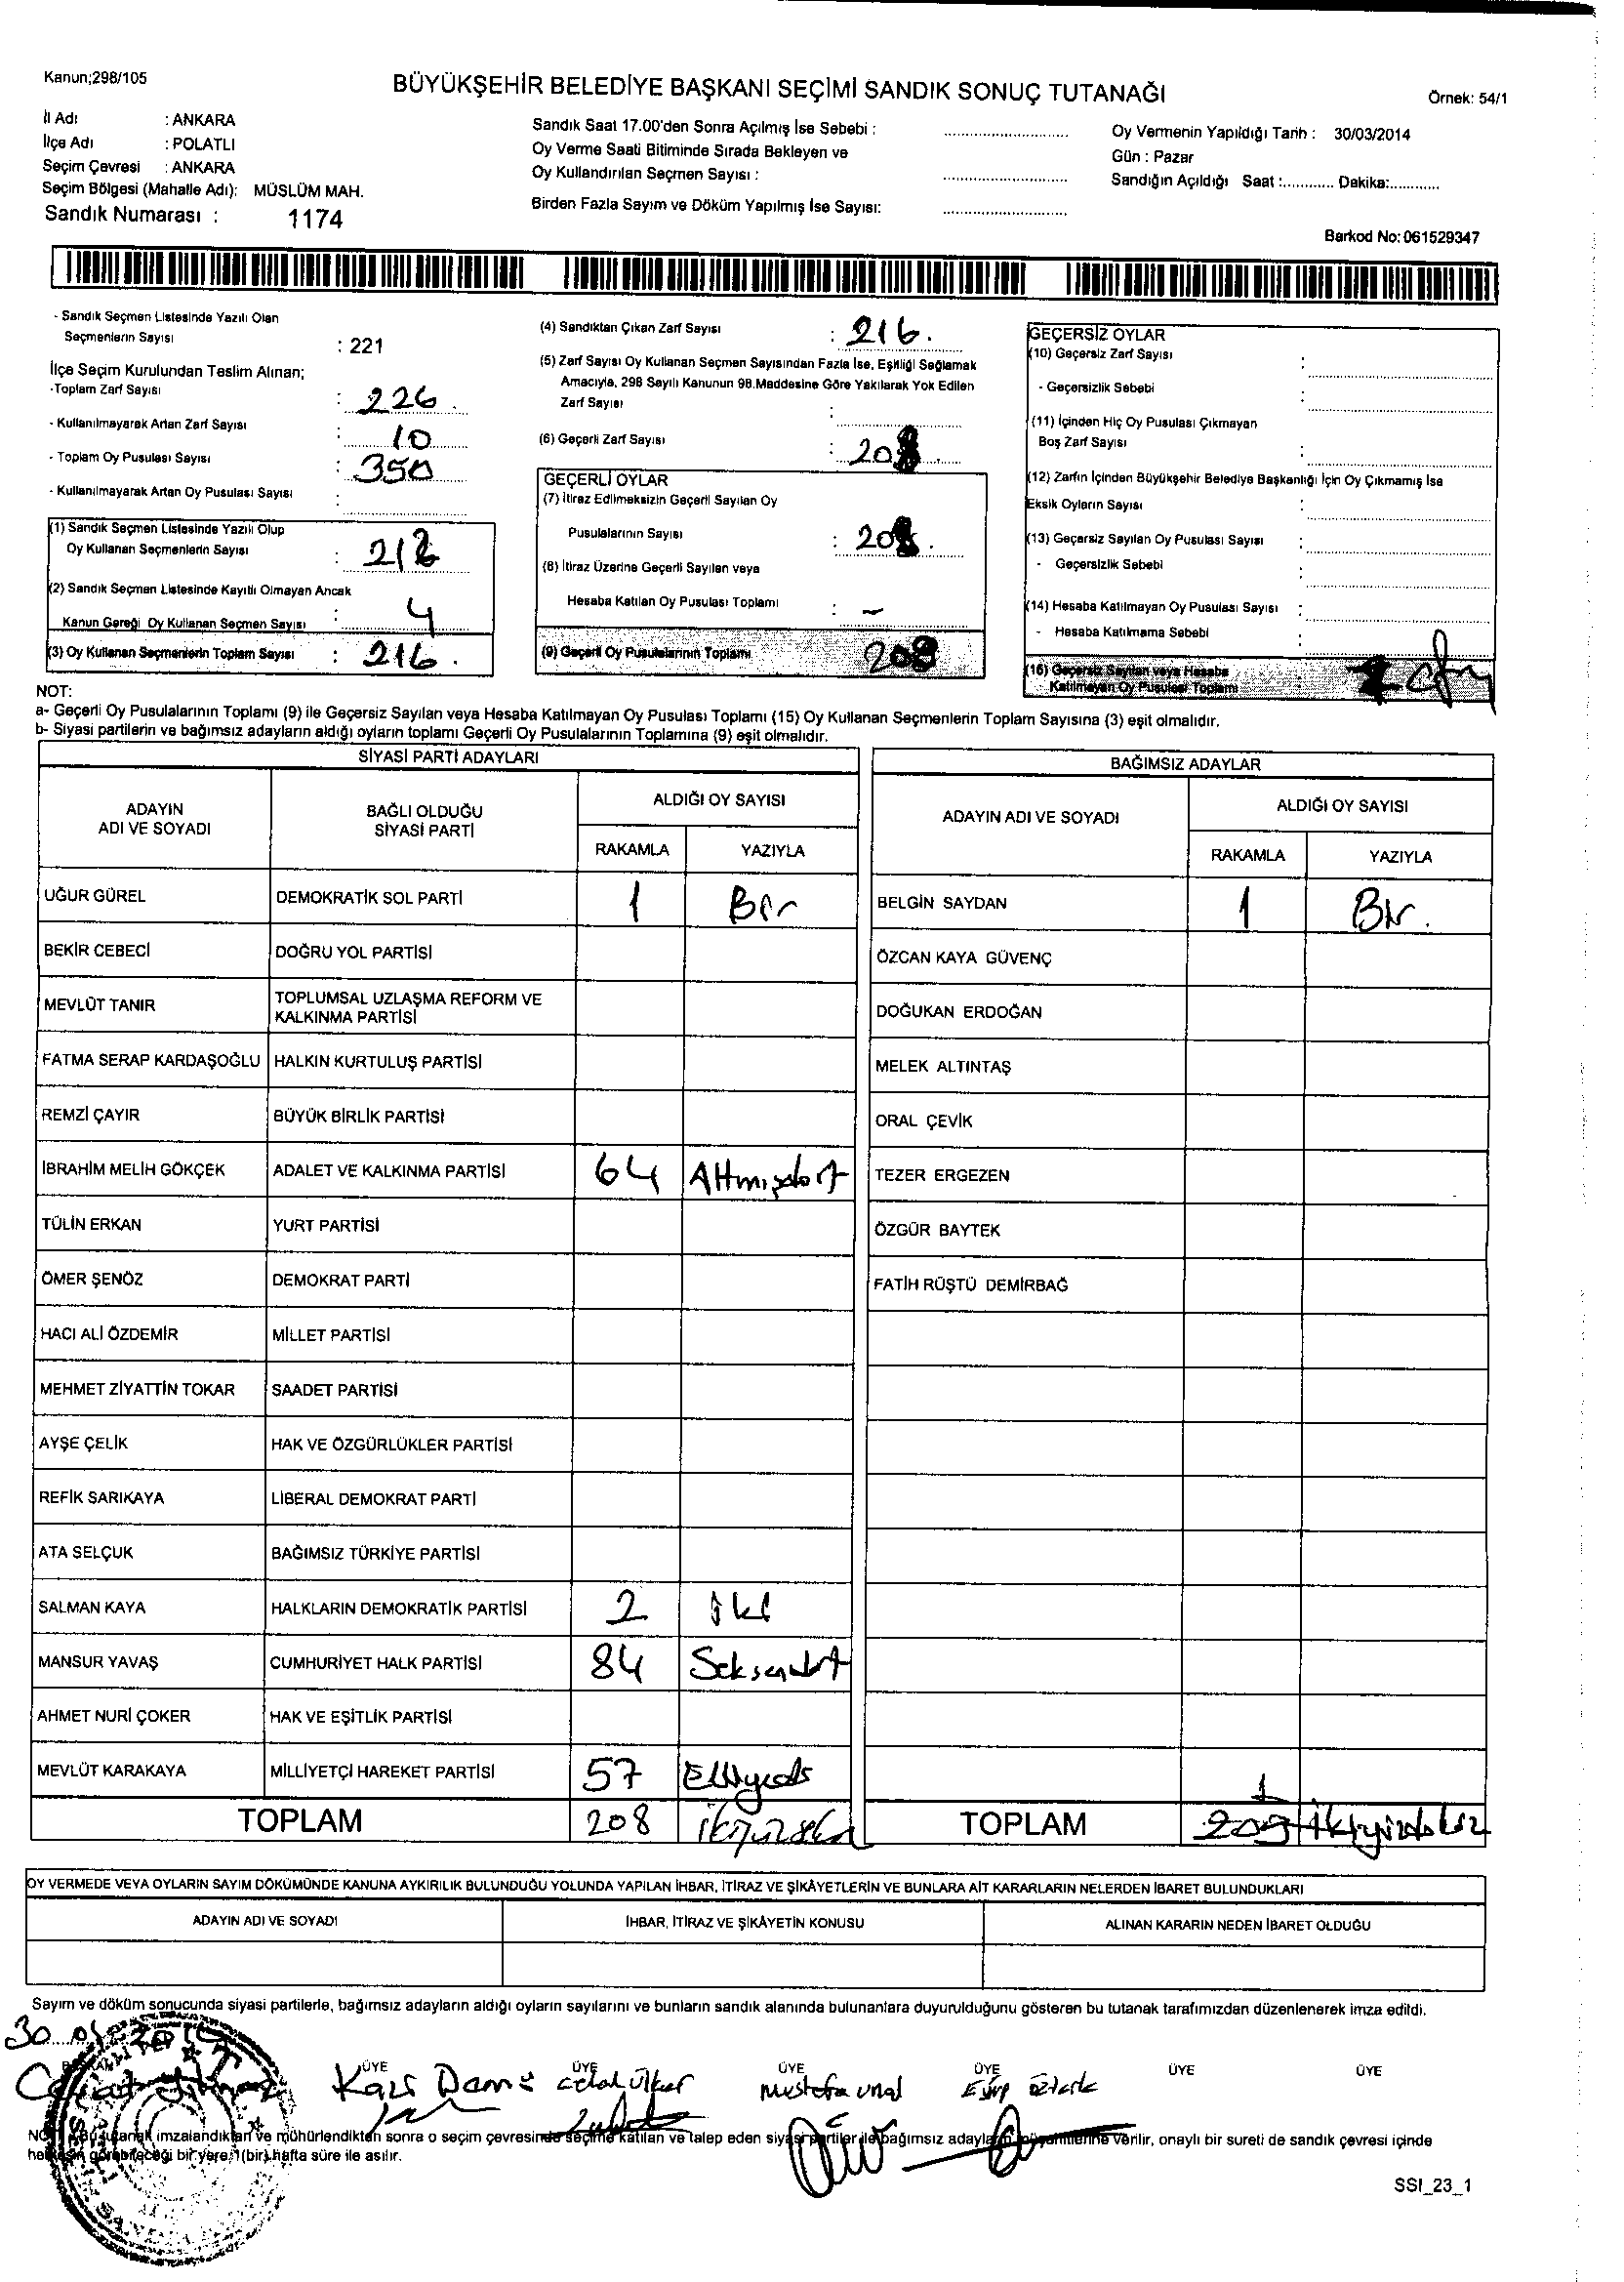 Kanun;298/105
BÜYÜKŞEHİR BELEDİYE BAŞKANI SEÇİMİ SANDIK SONUÇ TUTANAĞI
Örnek: 54/1
İl Adı : ANKARA
İlçe Adı : POLATLI
Seçim Çevresi : ANKARA
Seçim Bölgesi (Mahalle Adı); MÜSLÜM MAH.
Sandık Numarası : 1174
Sandık Saat 17.00'den Sonra Açılmış İse Sebebi :
Oy Verme Saati Bitiminde Sırada Bekleyen ve
Oy Kullandırılan Seçmen Sayısı :
Birden Fazla Sayım ve Döküm Yapılmış İse Sayısı:
Oy Vermenin Yapıldığı Tarih : 30/03/2014
Gün : Pazar
Sandığın Açıldığı Saat :............ Dakika:............
Barkod No: 061529347
- Sandık Seçmen Listesinde Yazılı Olan
Seçmenlerin Sayısı : 221
İlçe Seçim Kurulundan Teslim Alınan;
-Toplam Zarf Sayısı : 226
- Kullanılmayarak Artan Zarf Sayısı : 10
- Toplam Oy Pusulası Sayısı : 350
- Kullanılmayarak Artan Oy Pusulası Sayısı :
(1) Sandık Seçmen Listesinde Yazılı Olup
Oy Kullanan Seçmenlerin Sayısı : 212
(2) Sandık Seçmen Listesinde Kayıtlı Olmayan Ancak
Kanun Gereği Oy Kullanan Seçmen Sayısı : 4
(3) Oy Kullanan Seçmenlerin Toplam Sayısı : 216.
(4) Sandıktan Çıkan Zarf Sayısı : 216.
(5) Zarf Sayısı Oy Kullanan Seçmen Sayısından Fazla İse, Eşitliği Sağlamak
Amacıyla, 298 Sayılı Kanunun 98.Maddesine Göre Yakılarak Yok Edilen
Zarf Sayısı :
(6) Geçerli Zarf Sayısı : 208
GEÇERLİ OYLAR
(7) İtiraz Edilmeksizin Geçerli Sayılan Oy
Pusulalarının Sayısı : 208.
(8) İtiraz Üzerine Geçerli Sayılan veya
Hesaba Katılan Oy Pusulası Toplamı : -
(9) Geçerli Oy Pusulalarının Toplamı 208
GEÇERSİZ OYLAR
(10) Geçersiz Zarf Sayısı :
- Geçersizlik Sebebi :
(11) İçinden Hiç Oy Pusulası Çıkmayan
Boş Zarf Sayısı :
(12) Zarfın İçinden Büyükşehir Belediye Başkanlığı İçin Oy Çıkmamış İse
Eksik Oyların Sayısı :
(13) Geçersiz Sayılan Oy Pusulası Sayısı :
- Geçersizlik Sebebi :
(14) Hesaba Katılmayan Oy Pusulası Sayısı :
- Hesaba Katılmama Sebebi :
(15) Geçersiz Sayılan veya Hesaba
Katılmayan Oy Pusulası Toplamı
NOT:
a- Geçerli Oy Pusulalarının Toplamı (9) ile Geçersiz Sayılan veya Hesaba Katılmayan Oy Pusulası Toplamı (15) Oy Kullanan Seçmenlerin Toplam Sayısına (3) eşit olmalıdır.
b- Siyasi partilerin ve bağımsız adayların aldığı oyların toplamı Geçerli Oy Pusulalarının Toplamına (9) eşit olmalıdır.
SİYASİ PARTİ ADAYLARI
ADAYIN ADI VE SOYADI
BAĞLI OLDUĞU SİYASİ PARTİ
ALDIĞI OY SAYISI
RAKAMLA YAZIYLA
UĞUR GÜREL DEMOKRATİK SOL PARTİ 1 Bir
BEKİR CEBECİ DOĞRU YOL PARTİSİ
MEVLÜT TANIR TOPLUMSAL UZLAŞMA REFORM VE KALKINMA PARTİSİ
FATMA SERAP KARDAŞOĞLU HALKIN KURTULUŞ PARTİSİ
REMZİ ÇAYIR BÜYÜK BİRLİK PARTİSİ
İBRAHİM MELİH GÖKÇEK ADALET VE KALKINMA PARTİSİ 64 Altmışdört
TÜLİN ERKAN YURT PARTİSİ
ÖMER ŞENÖZ DEMOKRAT PARTİ
HACI ALİ ÖZDEMİR MİLLET PARTİSİ
MEHMET ZİYATTİN TOKAR SAADET PARTİSİ
AYŞE ÇELİK HAK VE ÖZGÜRLÜKLER PARTİSİ
REFİK SARIKAYA LİBERAL DEMOKRAT PARTİ
ATA SELÇUK BAĞIMSIZ TÜRKİYE PARTİSİ
SALMAN KAYA HALKLARIN DEMOKRATİK PARTİSİ 2 iki
MANSUR YAVAŞ CUMHURİYET HALK PARTİSİ 84 Seksendört
AHMET NURİ ÇOKER HAK VE EŞİTLİK PARTİSİ
MEVLÜT KARAKAYA MİLLİYETÇİ HAREKET PARTİSİ 57 Elliyedi
TOPLAM 208 ikiyüzsekiz
BAĞIMSIZ ADAYLAR
ADAYIN ADI VE SOYADI
ALDIĞI OY SAYISI
RAKAMLA YAZIYLA
BELGİN SAYDAN 1 Bir.
ÖZCAN KAYA GÜVENÇ
DOĞUKAN ERDOĞAN
MELEK ALTINTAŞ
ORAL ÇEVİK
TEZER ERGEZEN
ÖZGÜR BAYTEK
FATİH RÜŞTÜ DEMİRBAĞ
1
TOPLAM 209 ikiyüzdokuz
OY VERMEDE VEYA OYLARIN SAYIM DÖKÜMÜNDE KANUNA AYKIRILIK BULUNDUĞU YOLUNDA YAPILAN İHBAR, İTİRAZ VE ŞİKÂYETLERİN VE BUNLARA AİT KARARLARIN NELERDEN İBARET BULUNDUKLARI
ADAYIN ADI VE SOYADI İHBAR, İTİRAZ VE ŞİKÂYETİN KONUSU ALINAN KARARIN NEDEN İBARET OLDUĞU
Sayım ve döküm sonucunda siyasi partilerle, bağımsız adayların aldığı oyların sayılarını ve bunların sandık alanında bulunanlara duyurulduğunu gösteren bu tutanak tarafımızdan düzenlenerek imza edildi.
ÜYE ÜYE ÜYE ÜYE ÜYE ÜYE
Celal ülker Mustafa ünal
Bu tutanak imzalandıktan ve mühürlendikten sonra o seçim çevresinde seçime katılan ve talep eden siyasi partiler ile bağımsız adayların müşahitlerine verilir, onaylı bir sureti de sandık çevresi içinde
herkesin görebileceği bir yere 1(bir) hafta süre ile asılır.
SSI_23_1